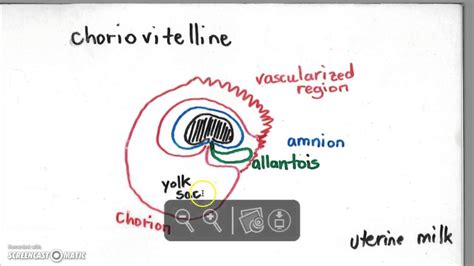 choriovitelline
vascularized
region
amnion
allantois
yolk
sac
chorion
uterine milk
Recorded with
SCREENCAST-O-MATIC